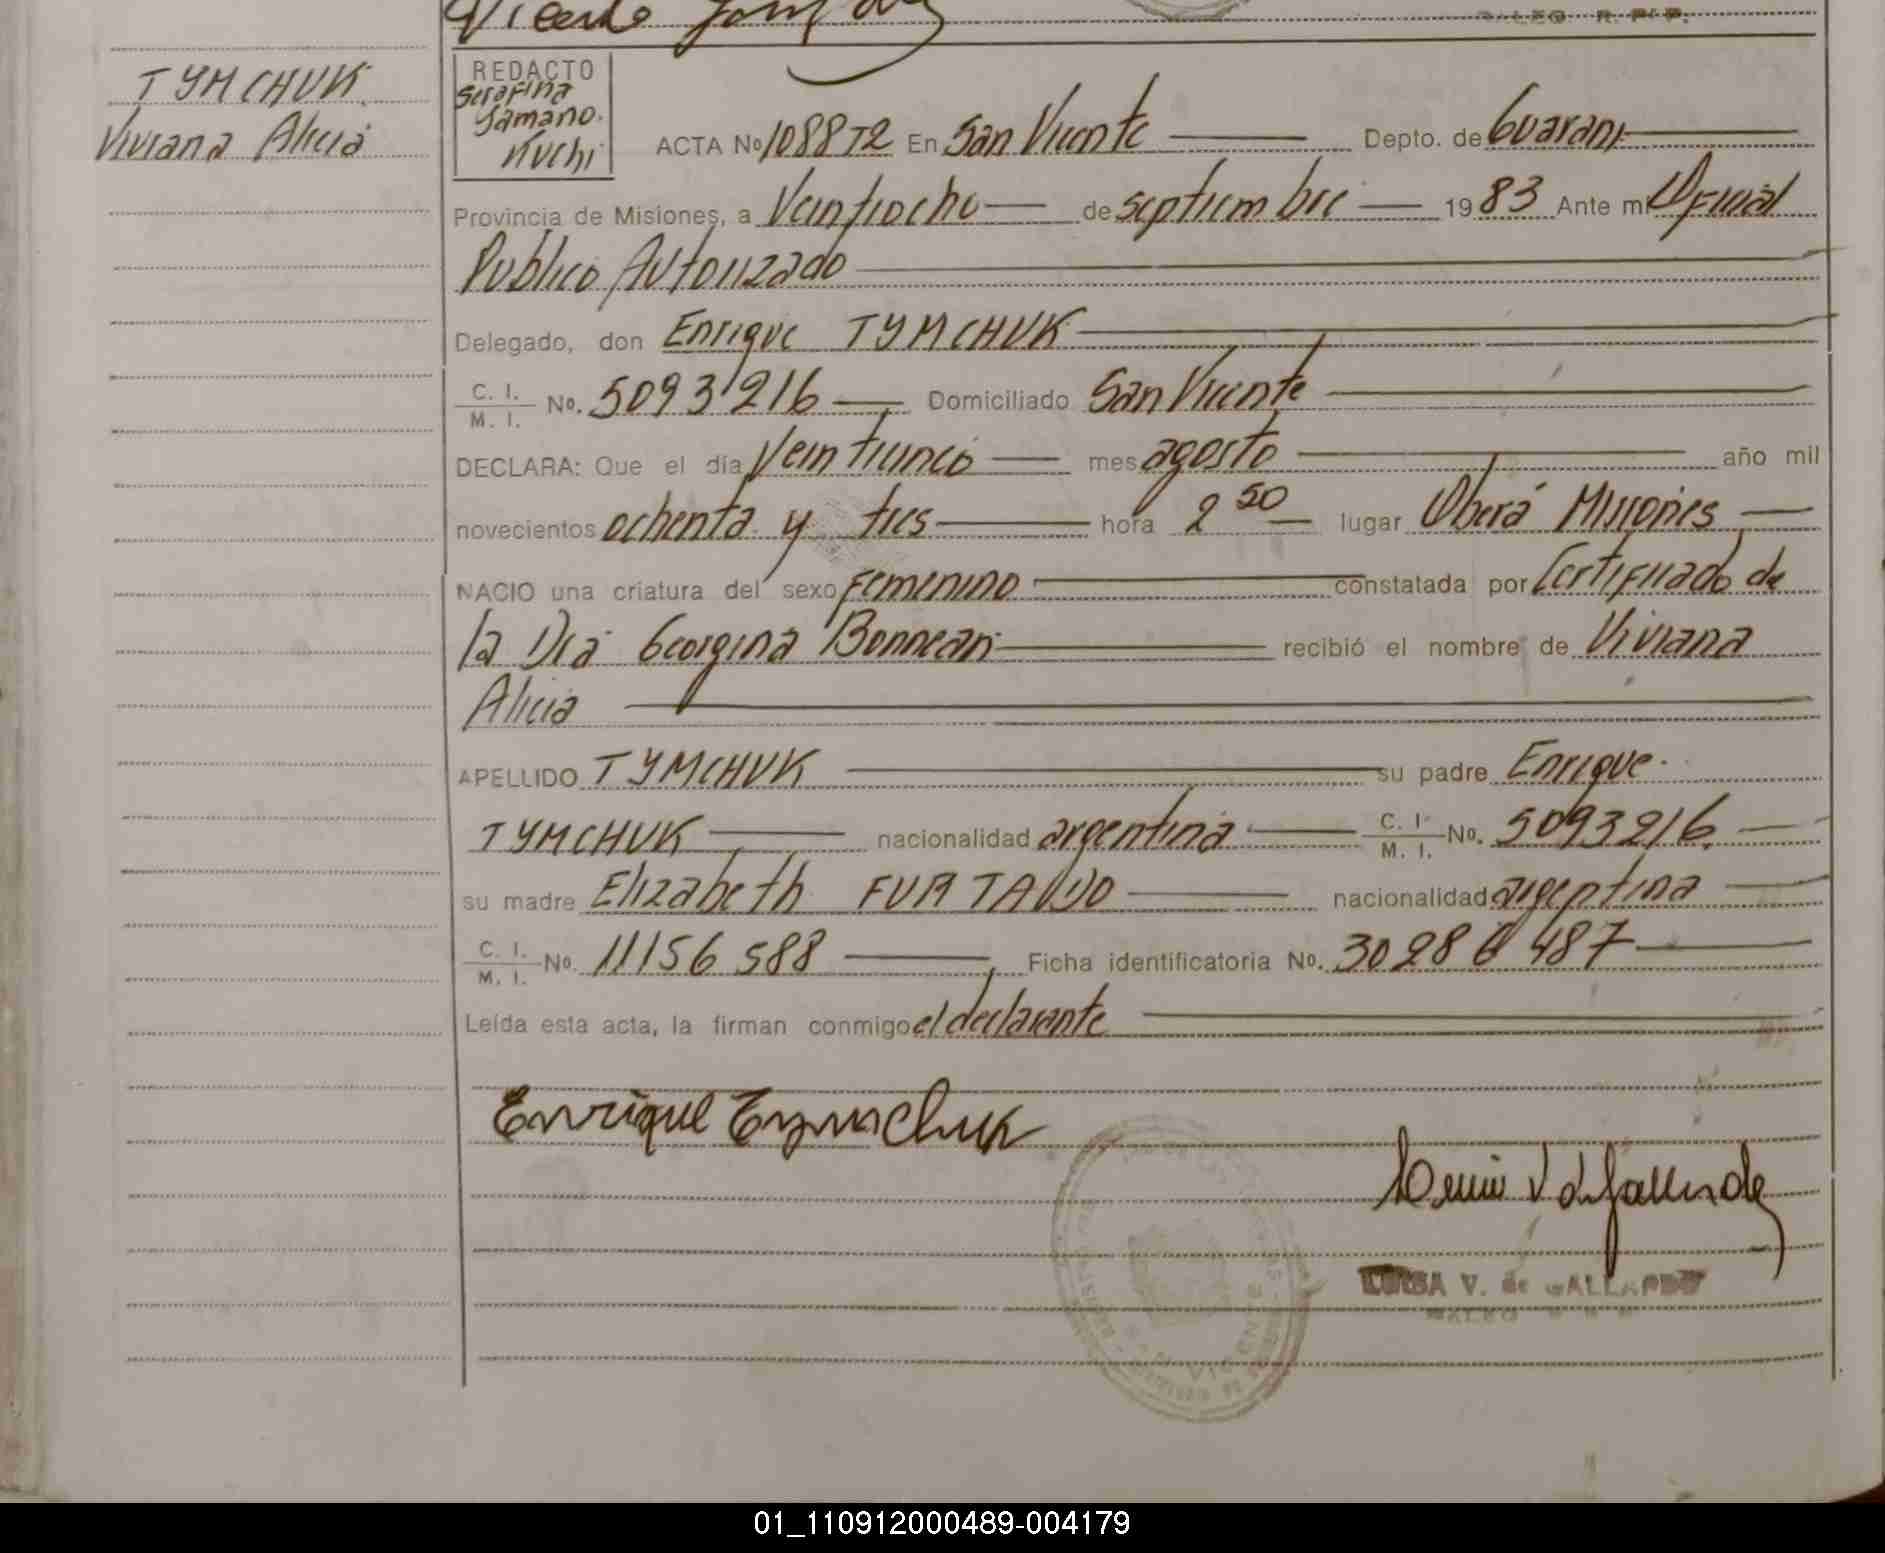 TYMCHUK
Viviana Alicia
REDACTO
Serafina
Kuchi
ACTA No 1088T2 En San Vicente Depto. de Guaraní
Provincia de Misiones, a Veintiocho de septiembre 1983 Ante mí Oficial
Publico Autorizado
Delegado, don Enrique TYMCHUK
C. I. / M. I. No. 5093216 Domiciliado San Vicente
DECLARA: Que el día Veinticinco mes agosto año mil
novecientos ochenta y tres hora 2 50 lugar Oberá Misiones
NACIO una criatura del sexo Femenino constatada por Certificado de
la Dra Georgina Bonnean recibió el nombre de Viviana
Alicia
APELLIDO TYMCHUK su padre Enrique
TYMCHUK nacionalidad argentina C. I. / M. I. No. 5093216
su madre Elizabeth FURTADO nacionalidad argentina
C. I. / M. I. No. 11156588 Ficha identificatoria No. 30286487
Leída esta acta, la firman conmigo el declarante
Enrique Tymchuk
LUISA V. de GALLARDO
01_110912000489-004179